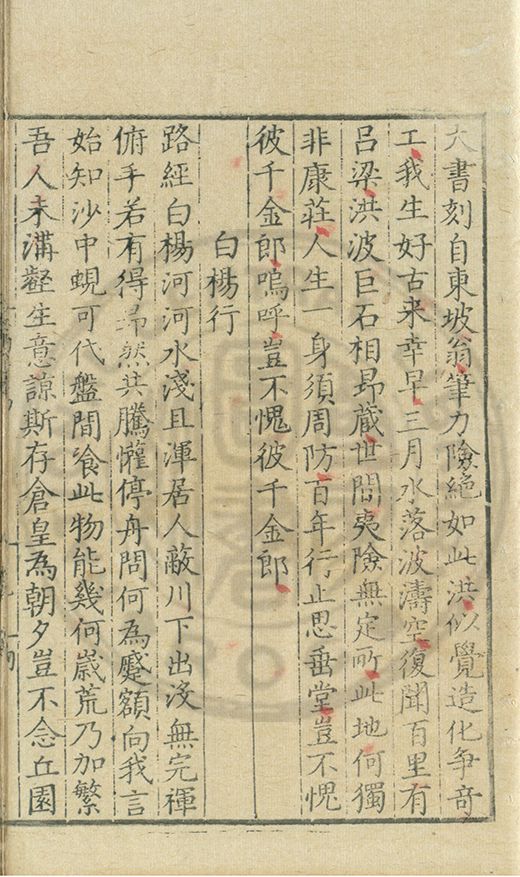 大書刻自東坡翁筆力險絕如此洪似覺造化爭奇
工我生好古来幸早三月水落波濤空復聞百里有
呂梁洪波巨石相昻藏世間夷險無定所此地何獨
非康莊人生一身須周防百年行止思垂堂豈不愧
彼千金郎嗚呼豈不愧彼千金郎
白楊行
路經白楊河河水淺且渾居人敝川下出没無完褌
俯手若有得昻然共騰懽停舟問何為蹙額向我言
始知沙中蜆可代盤間飧此物能幾何歲荒乃加繁
吾人未溝壑生意諒斯存倉皇為朝夕豈不念丘園